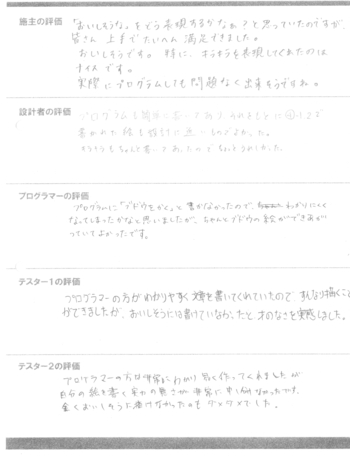 施主の評価
「おいしそうな」をどう表現するかなぁ?と思っていたのですが、
皆さん 上手でたいへん満足できました。
おいしそうです。特に、キラキラを表現してくれたのは
ナイスです。
実際にプログラムしても問題なく出来そうですね。
設計者の評価
プログラムも
書かれた絵も設計に
キラキラもちゃんと書いてあったので
プログラマーの評価
プログラムに「ブドウをかく」と書かなかったので、わかりにくく
なってしまったかなと思いましたが、ちゃんとブドウの絵ができあが
っていてよかったです。
テスター1の評価
プログラマーの方がわかりやすく書いてくれていたので すんなり描くこと
ができましたが、おいしそうには書けていなかったと 才のなさを実感しました。
テスター2の評価
プログラマーの方は非常に分かり易く作ってくれましたが
自分の絵を書く能力の無さが非常に申し訳なかったです。
全くおいしそうに書けなかったのもダメダメでした。